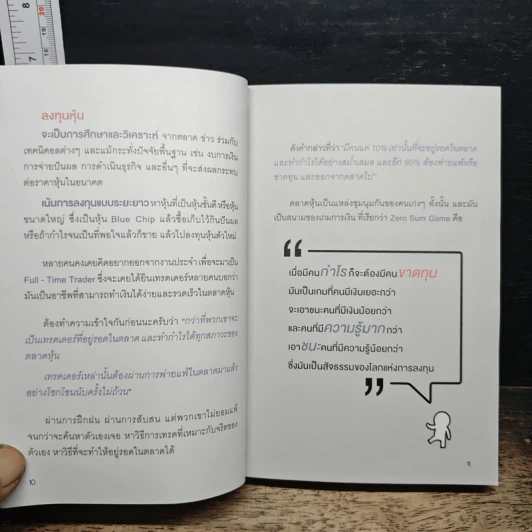 7
20
18
8
ลงทุนหุ้น
จะเป็นการศึกษาและวิเคราะห์ จากตลาด ข่าว ร่วมกับ
เทคนิคอลต่างๆ และแม้กระทั่งปัจจัยพื้นฐาน เช่น งบการเงิน
การจ่ายปันผล การดำเนินธุรกิจ และอื่นๆ ที่จะส่งผลกระทบ
ต่อราคาหุ้นในอนาคต
เน้นการลงทุนแบบระยะยาว หาหุ้นที่เป็นหุ้นชั้นดี หรือหุ้น
ขนาดใหญ่ ซึ่งเป็นหุ้น Blue Chip แล้วซื้อเก็บไว้กินปันผล
หรือถ้ากำไรจนเป็นที่พอใจแล้วก็ขาย แล้วไปลงทุนหุ้นตัวใหม่
หลายคนคงเคยคิดอยากออกจากงานประจำ เพื่อจะมาเป็น
Full - Time Trader ซึ่งจะเคยได้ยินเทรดเดอร์หลายคนบอกว่า
มันเป็นอาชีพที่สามารถทำเงินได้ง่ายและรวดเร็วในตลาดหุ้น
ต้องทำความเข้าใจกันก่อนนะครับว่า "กว่าที่พวกเขาจะ
เป็นเทรดเดอร์ที่อยู่รอดในตลาด และทำกำไรได้ทุกสภาวะของ
ตลาดหุ้น
เทรดเดอร์เหล่านั้นต้องผ่านการพ่ายแพ้ในตลาดมาแล้ว
อย่างโชกโชนนับครั้งไม่ถ้วน"
ผ่านการฝึกฝน ผ่านการสับสน แต่พวกเขาไม่ยอมแพ้
จนกว่าจะค้นหาตัวเองเจอ หาวิธีการเทรดที่เหมาะกับจริตของ
ตัวเอง หาวิธีที่จะทำให้อยู่รอดในตลาดได้
10
ดังคำกล่าวที่ว่า "มีคนแค่ 10% เท่านั้นที่จะอยู่รอดในตลาด
และทำกำไรได้อย่างสม่ำเสมอ และอีก 90% ต้องพ่ายแพ้หรือ
ขาดทุน และออกจากตลาดไป"
ตลาดหุ้นเป็นแหล่งชุมนุมกันของคนเก่งๆ ทั้งนั้น และมัน
เป็นสนามของเกมการเงิน ที่เรียกว่า Zero Sum Game คือ
“
เมื่อมีคนกำไร ก็จะต้องมีคนขาดทุน
มันเป็นเกมที่คนมีเงินเยอะกว่า
จะเอาชนะคนที่มีเงินน้อยกว่า
และคนที่มีความรู้มากกว่า
เอาชนะคนที่มีความรู้น้อยกว่า
ซึ่งมันเป็นสัจธรรมของโลกแห่งการลงทุน
”
11